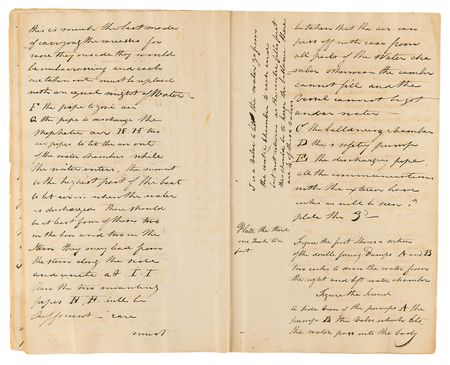 this is much the best mode
of carrying the carcasses for
were they inside they would
be embarrassing and each
one taken out must be replaced
with an equal weight of Water
F the pipe to give air
G the pipe to discharge the
Mephitic air H. H two
air pipes to let the air out
of the water chambers while
the water enters, they must
to the highest part of the boat
to let air in when the water
is discharged there should
be at least four of these two
in the bow and two in the
Stern they may lead from
the stern along the side
and unite at I. I
then the two mounting
pipes H, H will be
sufficient — care
must
be taken that the air can
pass off with ease from
all parts of the Water cha
mber otherwise the
cannot fill and the
Vessel cannot be got
under water
C the ballancing chamber
D the safety pump
E the discharging pipe
all the communications
with the
will be seen in
plate the 3d
Plate the third
one Inch to a
foot.
Figure the first Shews a section
of the double forcing Pumps A and B
two cocks to draw the water from
the right and left water chamber
Figure the second
A side view of the pumps A the
pump B the Valve which lets
the water pass into the body